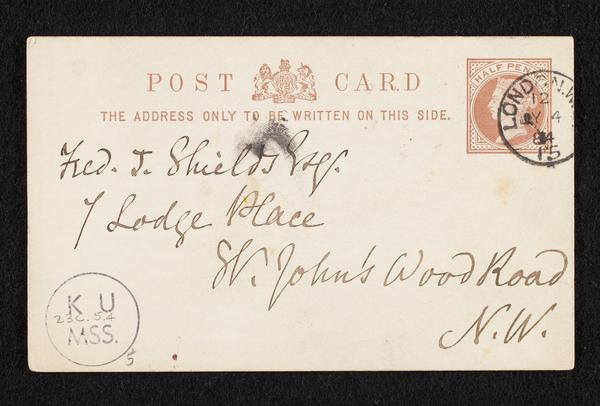 POST CARD
THE ADDRESS ONLY TO BE WRITTEN ON THIS SIDE.
HALF PENNY
LONDON.N.W
12
JY 4
84
15
Fred. J. Shields Esq.
7 Lodge Place
St. John's Wood Road
N.W.
K U
23C.54
MSS.
5